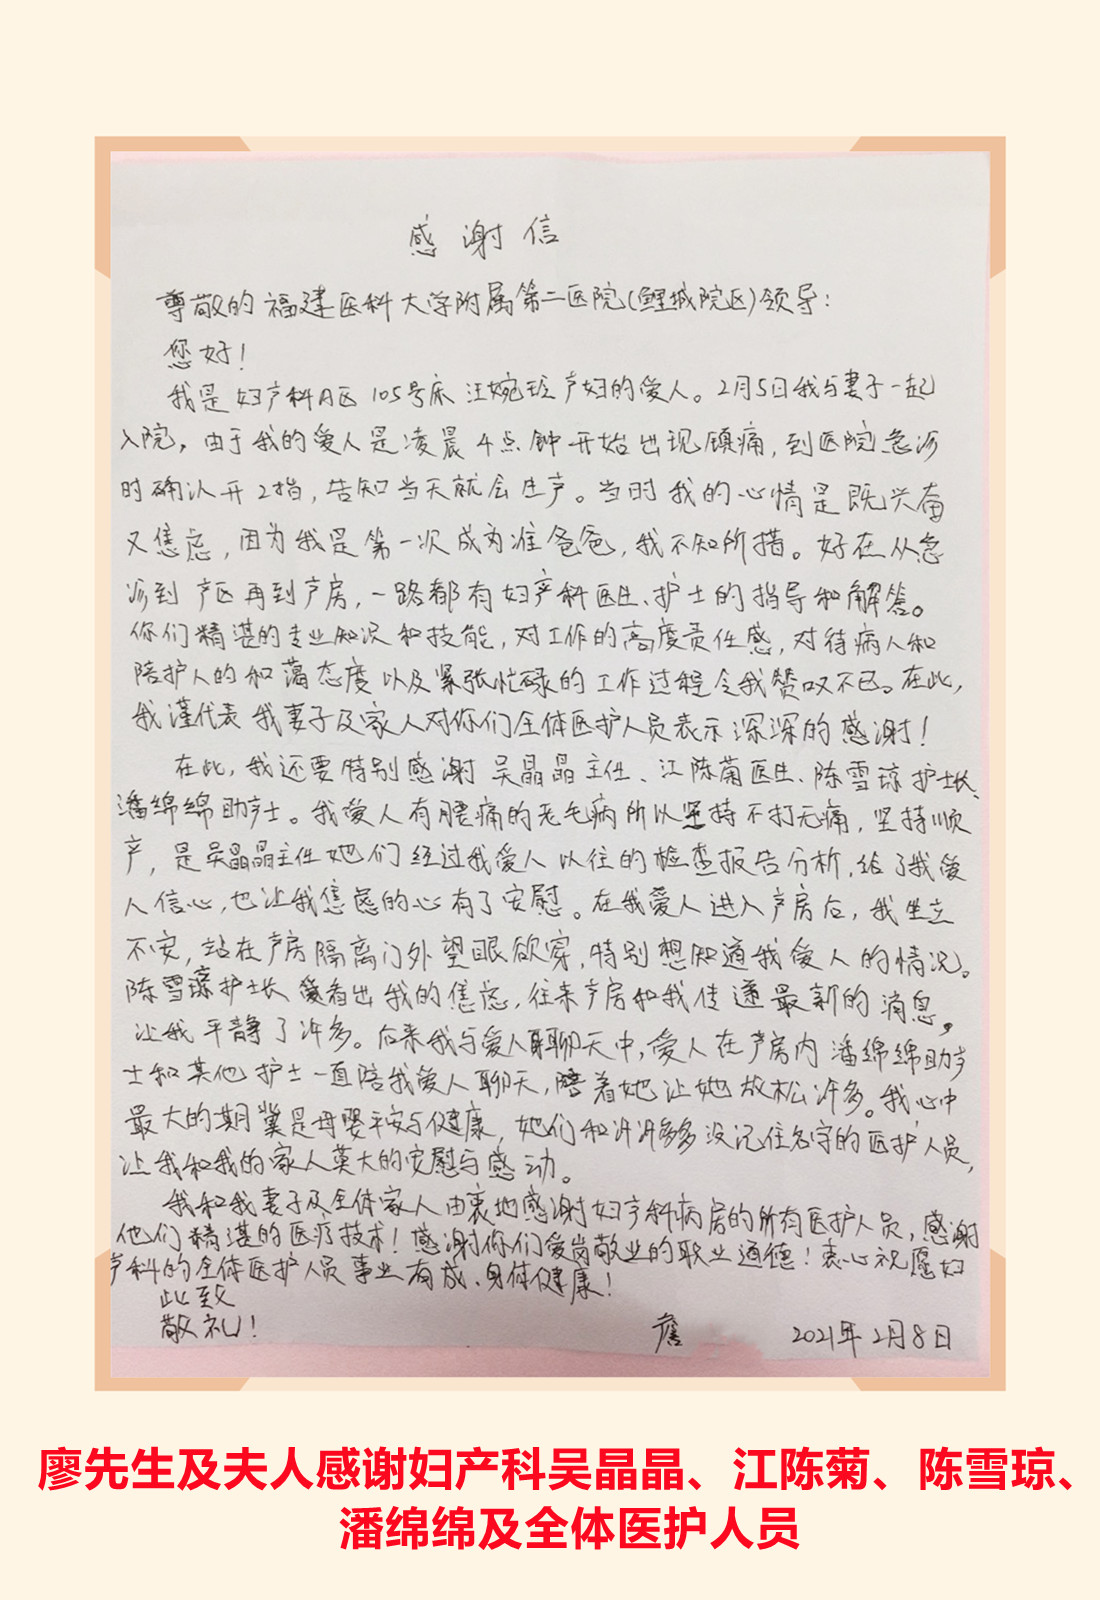 感谢信
尊敬的福建医科大学附属第二医院(鲤城院区)领导:
您好!
我是妇产科A区105号床汪婉玢产妇的爱人。2月5日我与妻子一起
入院,由于我的爱人是凌晨4点钟开始出现镇痛,到医院急诊
时确认开2指,告知当天就会生产。当时我的心情是既兴奋
又焦虑,因为我是第一次成为准爸爸,我不知所措。好在从急
诊到产区再到产房,一路都有妇产科医生、护士的指导和解答。
你们精湛的专业知识和技能,对工作的高度责任感,对待病人和
陪护人的和蔼态度以及紧张忙碌的工作过程令我赞叹不已。在此,
我谨代表我妻子及家人对你们全体医护人员表示深深的感谢!
在此,我还要特别感谢吴晶晶主任、江陈菊医生、陈雪琼护士长、
潘绵绵助产士。我爱人有腰痛的老毛病所以坚持不打无痛,坚持顺
产,是吴晶晶主任她们经过我爱人以往的检查报告分析,给了我爱
人信心,也让我焦虑的心有了安慰。在我爱人进入产房后,我坐立
不安,站在产房隔离门外望眼欲穿,特别想知道我爱人的情况。
陈雪琼护士长看出我的焦虑,往来产房和我传递最新的消息,
让我平静了许多。后来我与爱人聊天中,爱人在产房内潘绵绵助产
士和其他护士一直陪我爱人聊天,陪着她让她放松许多。我心中
最大的期冀是母婴平安与健康,她们和许许多多没记住名字的医护人员,
让我和我的家人莫大的安慰与感动。
我和我妻子及全体家人由衷地感谢妇产科病房的所有医护人员,感谢
他们精湛的医疗技术!感谢你们爱岗敬业的职业道德!衷心祝愿妇
产科的全体医护人员事业有成、身体健康!
此致
敬礼!
詹 2021年2月8日
廖先生及夫人感谢妇产科吴晶晶、江陈菊、陈雪琼、
潘绵绵及全体医护人员